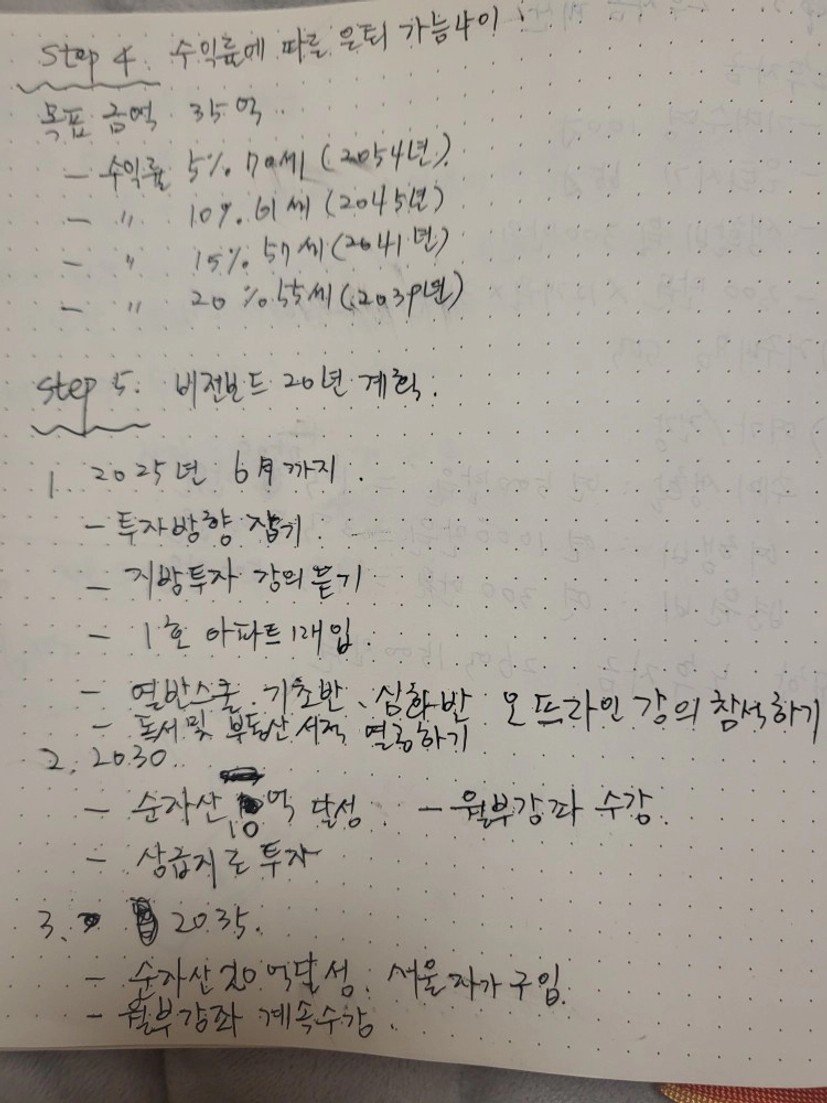 Step 4. 수익률에 따른 은퇴 가능나이
목표 금액 35억
- 수익률 5% 70세 (2054년)
- 〃 10% 61세 (2045년)
- 〃 15% 57세 (2041년)
- 〃 20% 55세 (2039년)
Step 5. 비전보드 20년 계획.
1. 2025년 6月까지.
- 투자방향 잡기
- 지방투자 강의 듣기
- 1호 아파트 매입.
- 열반스쿨 기초반, 심화반 오프라인 강의 참석하기
- 독서 및 부동산 서적 열중하기
2. 2030.
- 순자산 10억 달성. - 월부강좌 수강.
- 상급지로 투자
3. 2035.
- 순자산 20억 달성. 서울 자가 구입.
- 월부강좌 계속수강.